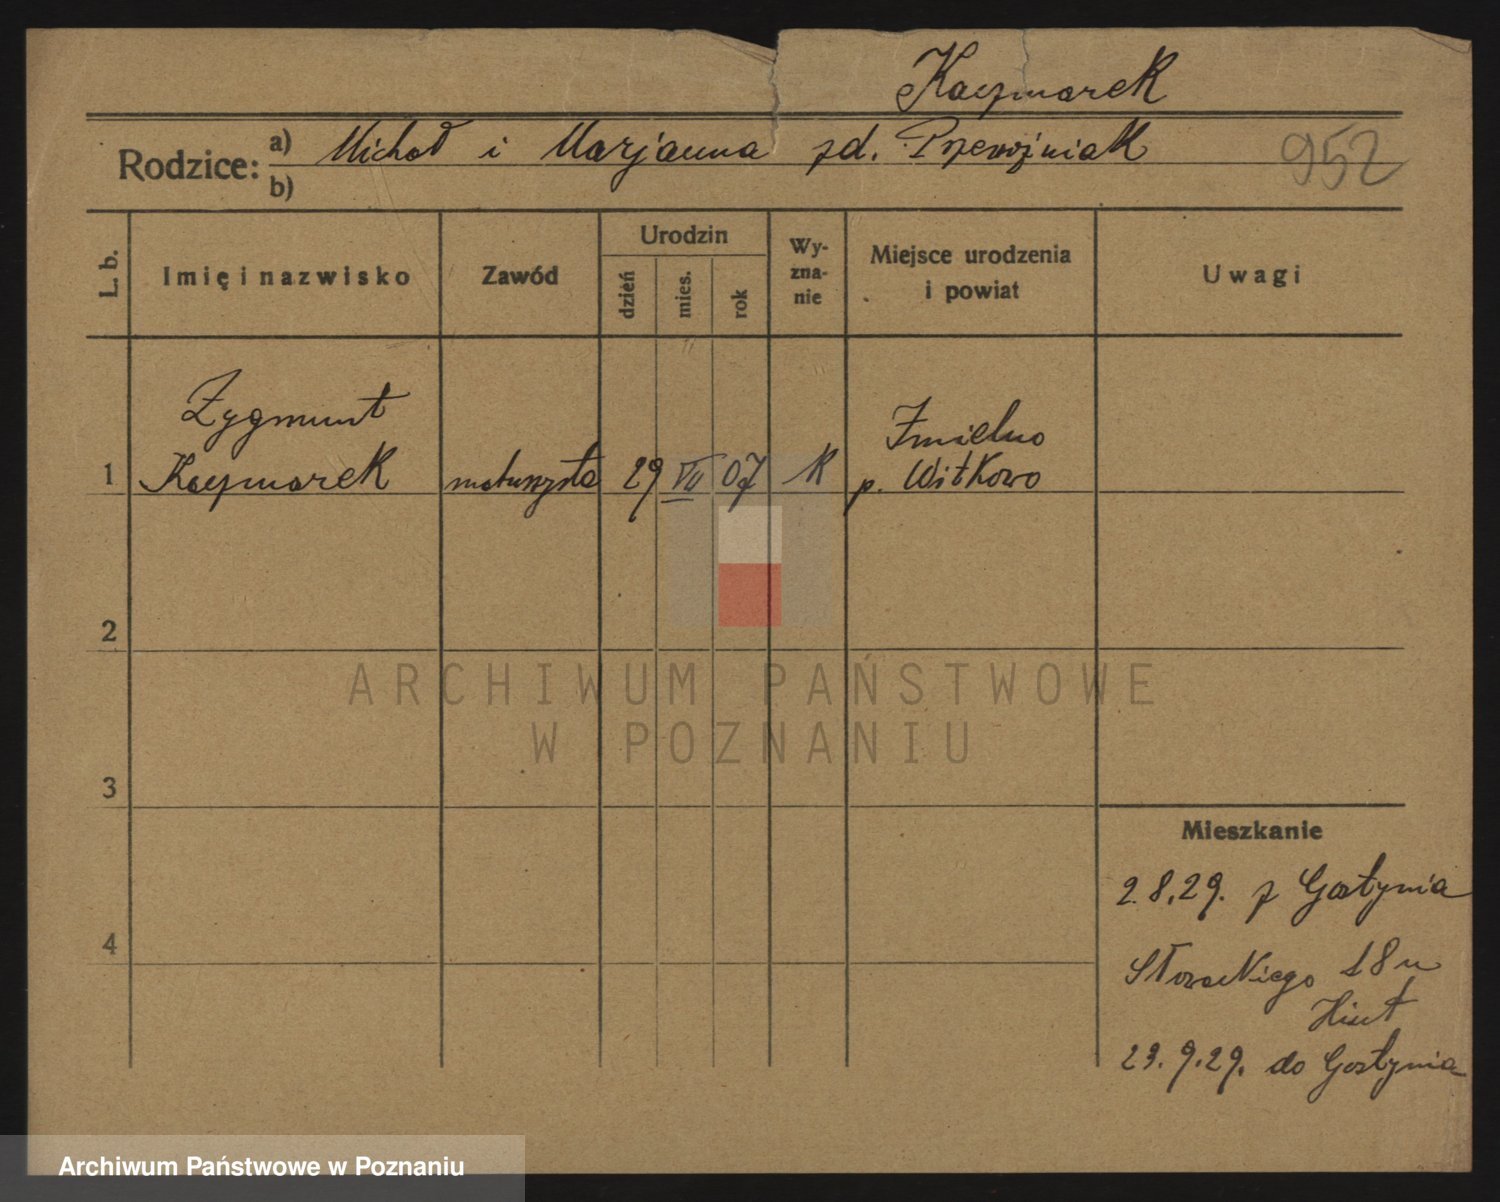 Kaczmarek
Rodzice: a) Michał i Marjanna zd. Przewoźniak
952
b)
L. b.
Imię i nazwisko
Zawód
Urodzin
dzień
mies.
rok
Wy-
zna-
nie
Miejsce urodzenia
i powiat
Uwagi
Zygmunt
Żmielno
1 Kaczmarek maturzysta 29 VII 07 K p. Witkowo
2
ARCHIWUM PAŃSTWOWE
W POZNANIU
3
Mieszkanie
2.8.29. z Gostynia
4
Słowackiego 18 u
23.9.29. do Gostynia
Archiwum Państwowe w Poznaniu